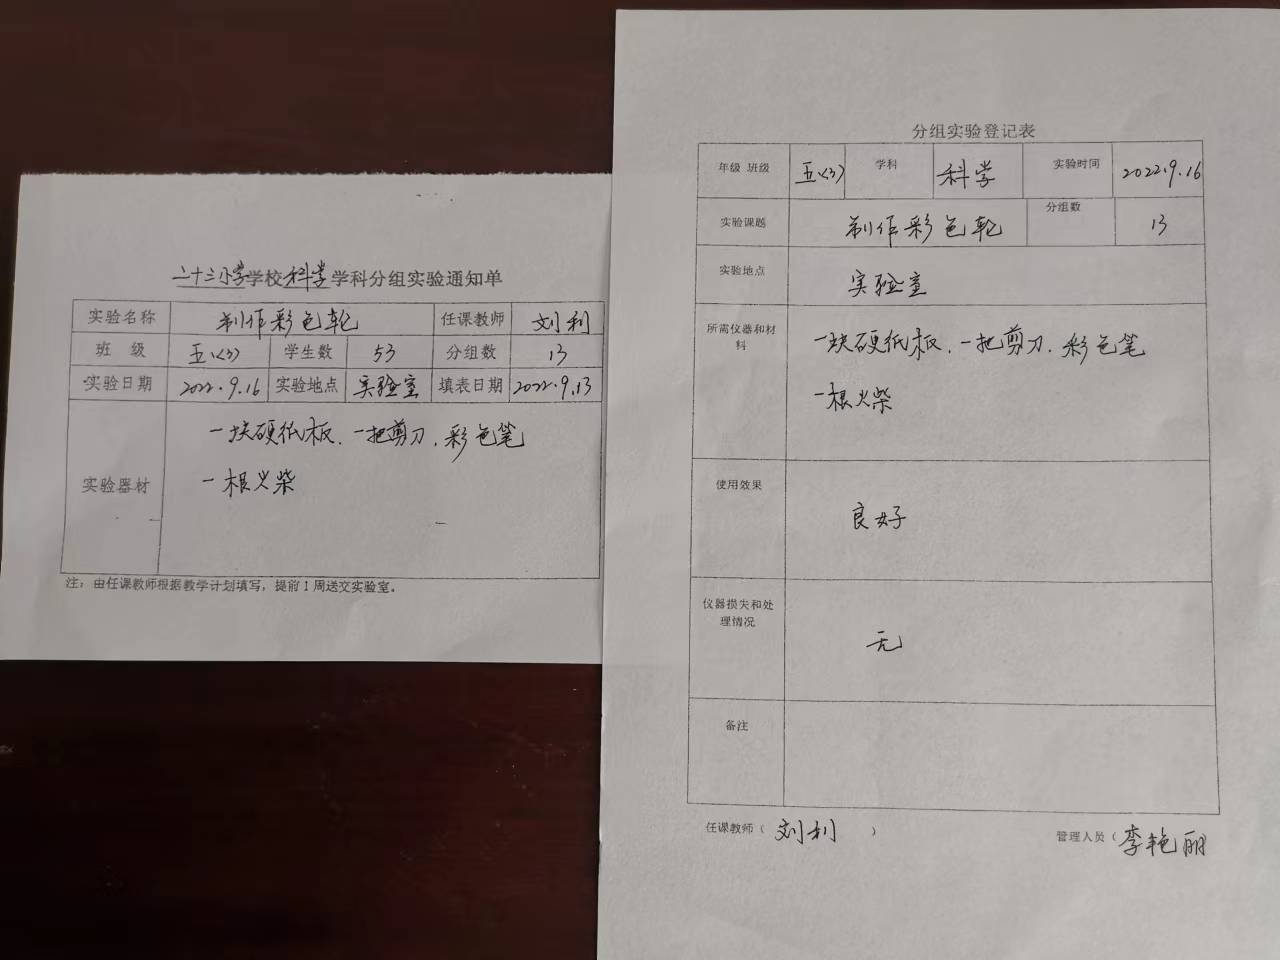 二十三小学学校科学学科分组实验通知单
实验名称 制作彩色轮 任课教师 刘利
班 级 五(3) 学生数 53 分组数 13
实验日期 2022.9.16 实验地点 实验室 填表日期 2022.9.13
实验器材 一块硬纸板、一把剪刀、彩色笔
一根火柴
注：由任课教师根据教学计划填写，提前1周送交实验室。
分组实验登记表
年级 班级 五(3) 学科 科学 实验时间 2022.9.16
实验课题 制作彩色轮 分组数 13
实验地点 实验室
所需仪器和材
料
一块硬纸板、一把剪刀、彩色笔
一根火柴
使用效果 良好
仪器损失和处
理情况
无
备注
任课教师（ 刘利 ） 管理人员（ 李艳丽